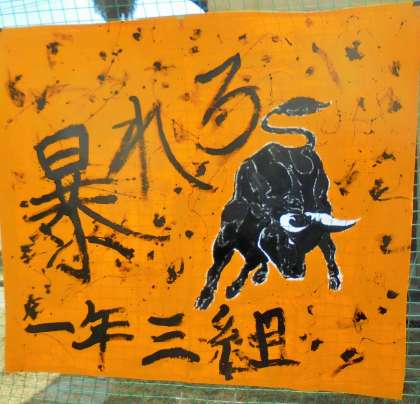 暴れろ
一年三組